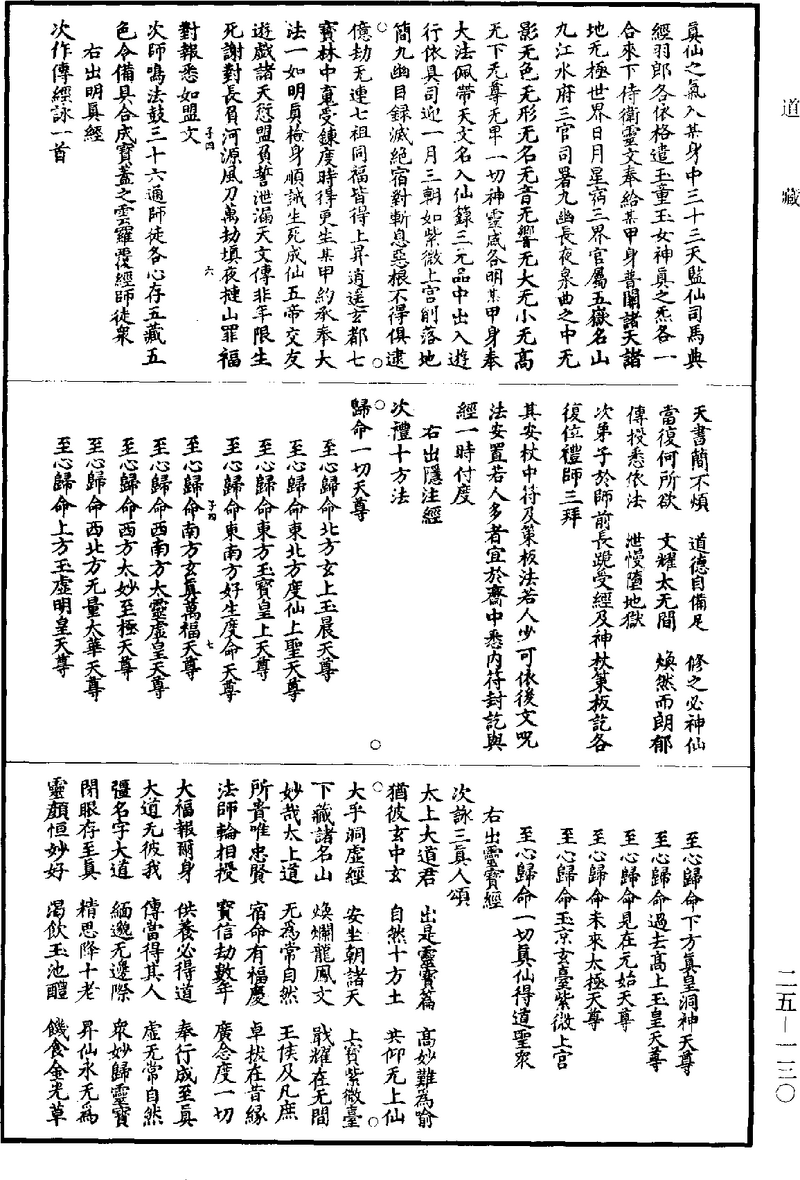 道藏
真仙之氣入某身中三十三天監仙司馬典
經羽郎各依格遣玉童玉女神真之炁各一
合來下侍衛靈文奉給某甲身普關諸天諸
地无極世界日月星宿三界官屬五嶽名山
九江水府三官司署九幽長夜泉曲之中无
影无色无形无名无音无響无大无小无高
无下无尊无卑一切神靈咸各明某甲身奉
大法佩帶天文名入仙籙三元品中出入遊
行依具司迎一月三朝如紫微上宮削落地
簡九幽目録滅絕宿對斬息惡根不得俱逮
億劫无連七祖同福皆得上昇逍遥玄都七
寶林中蒐受鍊度時得更生某甲約承奉大
法一如明真檢身順誡生死成仙五帝交友
遊戲諸天愆盟負誓泄漏天文傳非年限生
死謝對長屑河源風刀萬劫填夜撻山罪福
對報悉如盟文
子四 六
次師鳴法鼓三十六通師徒各心存五藏五
色令備具合成寶蓋之雲羅覆經師徒衆
右出明真經
次作傳經詠一首
天書簡不煩 道德自備足 修之必神仙
當復何所欲 文耀太无間 煥然而朗郁
傳授悉依法 泄慢墮地獄
次第子於師前長跪受經及神杖策板訖各
復位禮師三拜
其安杖中符及策板法若人少可依後文呪
法安置若人多者宜於齋中悉内符封訖與
經一時付度
右出隱注經
次禮十方法
歸命一切天尊
至心歸命北方玄上玉晨天尊
至心歸命東北方度仙上聖天尊
至心歸命東方玉寶皇上天尊
至心歸命東南方好生度命天尊
子四 七
至心歸命南方玄真萬福天尊
至心歸命西南方太靈虛皇天尊
至心歸命西方太妙至極天尊
至心歸命西北方无量太華天尊
至心歸命上方玉虛明皇天尊
至心歸命下方真皇洞神天尊
至心歸命過去高上玉皇天尊
至心歸命見在元始天尊
至心歸命未來太極天尊
至心歸命玉京玄臺紫微上宮
至心歸命一切真仙得道聖衆
右出靈寶經
次詠三真人頌
太上大道君 出是靈寶篇 高妙難為喻
猶彼玄中玄 自然十方土 共仰无上仙
大乎洞虛經 安坐朝諸天 上寶紫微臺
下藏諸名山 煥爛龍鳳文 戢耀在无間
妙哉太上道 无為常自然 王侯及凡庶
所貴唯忠賢 宿命有福慶 卓拔在昔緣
法師輪相授 寶信劫數年 廣念度一切
大福報爾身 供養必得道 奉行成至真
大道无彼我 傳當得其人 虛无常自然
彊名字大道 緬邈无邊際 衆妙歸靈寶
閉眼存至真 精思降十老 昇仙永无為
靈顔恒妙好 渴飲玉池醴 饑食金光草
二五—一三〇